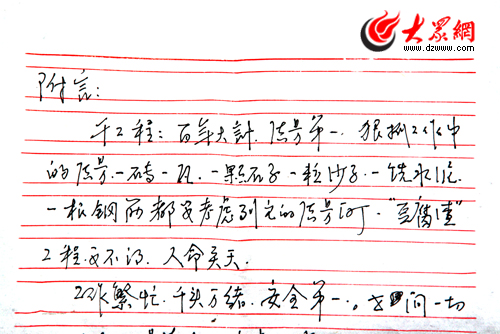 大众網
www.dzwww.com
附言：
干工程：百年大計.质量第一.狠抓工作中
的质量.一砖一瓦.一颗石子.一粒沙子.一铣水泥
一根钢筋都要考虑到它的质量问.“豆腐渣”
工程要不得.人命关天.
工作繁忙.千头万绪.安全第一。间一切